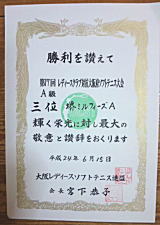 勝利を讃えて
レディースクラブ対抗大阪府ソフトテニス大会
A級
三位 堺ミルフィーズA
輝く栄光に対し最大の
敬意と賛辞をおくります
平成24年6月15日
大阪レディースソフトテニス連盟
会長 宮下恭子